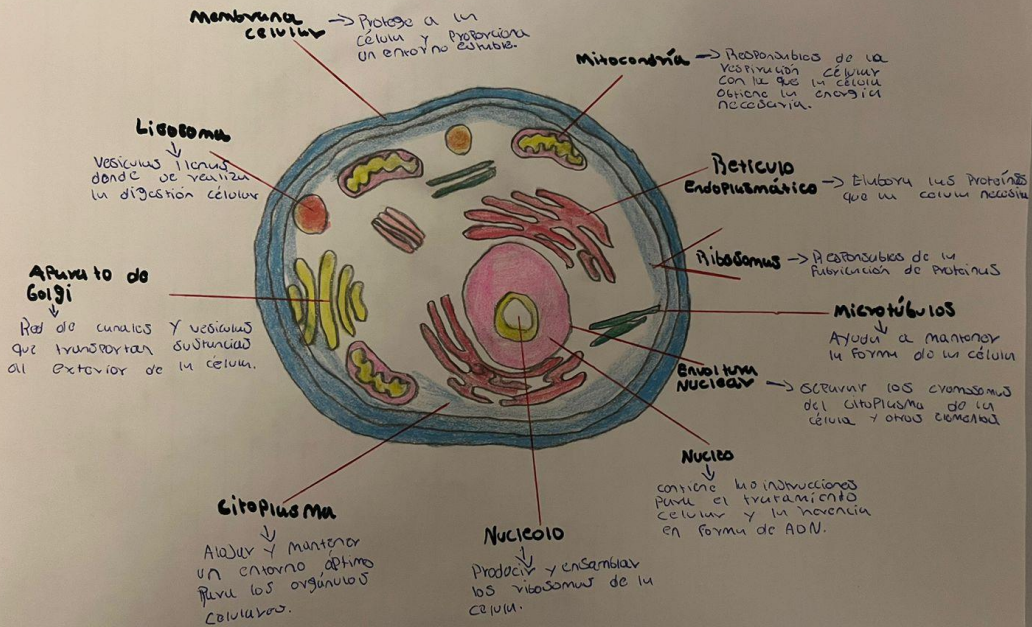 Membrana
celular
→ Protege a la
célula y proporciona
un entorno estable.
Mitocondria
→ Responsables de la
respiración célular
con la que la célula
obtiene la energía
necesaria.
Lisosoma
Vesículas llenas
donde se realiza
la digestión célular
Retículo
Endoplasmático → Elabora las Proteínas
que la celula necesita
Ribosomas → Responsables de la
Fabricación de Proteinas
Aparato de
Golgi
Red de canales y vesículas
que transportan sustancias
al exterior de la célula.
Microtúbulos
Ayuda a mantener
la forma de la célula
Envoltura
Nuclear → separar los cromosomas
del citoplasma de la
célula y otros elementos
Nucleo
contiene las instrucciones
para el tratamiento
celular y la herencia
en forma de ADN.
Citoplasma
Alojar y mantener
un entorno óptimo
para los orgánulos
celulares.
Nucleolo
Producir y ensamblar
los ribosomas de la
celula.